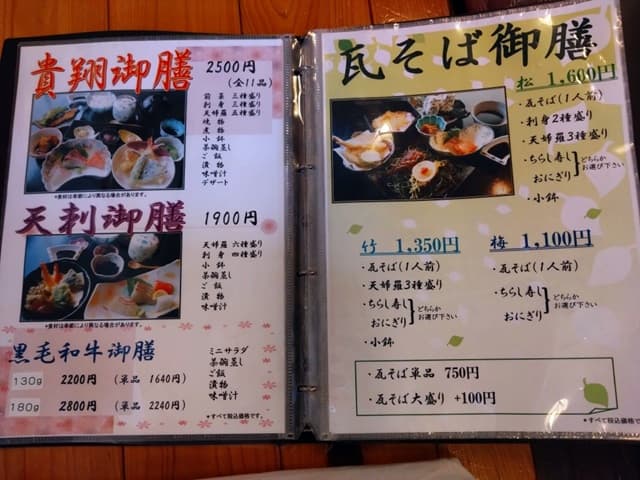 貴翔御膳
2500円
(全11品)
前菜 三種盛り
刺身 三種盛り
天婦羅 五種盛り
焼物
煮物
小鉢
茶碗蒸し
ご飯
漬物
味噌汁
デザート
*食材は季節により異なる場合があります。
天刺御膳
1900円
天婦羅 六種盛り
刺身 四種盛り
小鉢
茶碗蒸し
ご飯
漬物
味噌汁
*食材は季節により異なる場合があります。
黒毛和牛御膳
130g 2200円 (単品 1640円)
180g 2800円 (単品 2240円)
ミニサラダ
茶碗蒸し
ご飯
漬物
味噌汁
*すべて税込価格です。
瓦そば御膳
松 1,600円
・瓦そば(1人前)
・刺身2種盛り
・天婦羅3種盛り
・ちらし寿し
おにぎり
どちらか
お選び下さい
・小鉢
竹 1,350円
・瓦そば(1人前)
・天婦羅3種盛り
・ちらし寿し
おにぎり
どちらか
お選び下さい
・小鉢
梅 1,100円
・瓦そば(1人前)
・ちらし寿し
おにぎり
どちらか
お選び下さい
・瓦そば単品 750円
・瓦そば大盛り +100円
*すべて税込価格です。